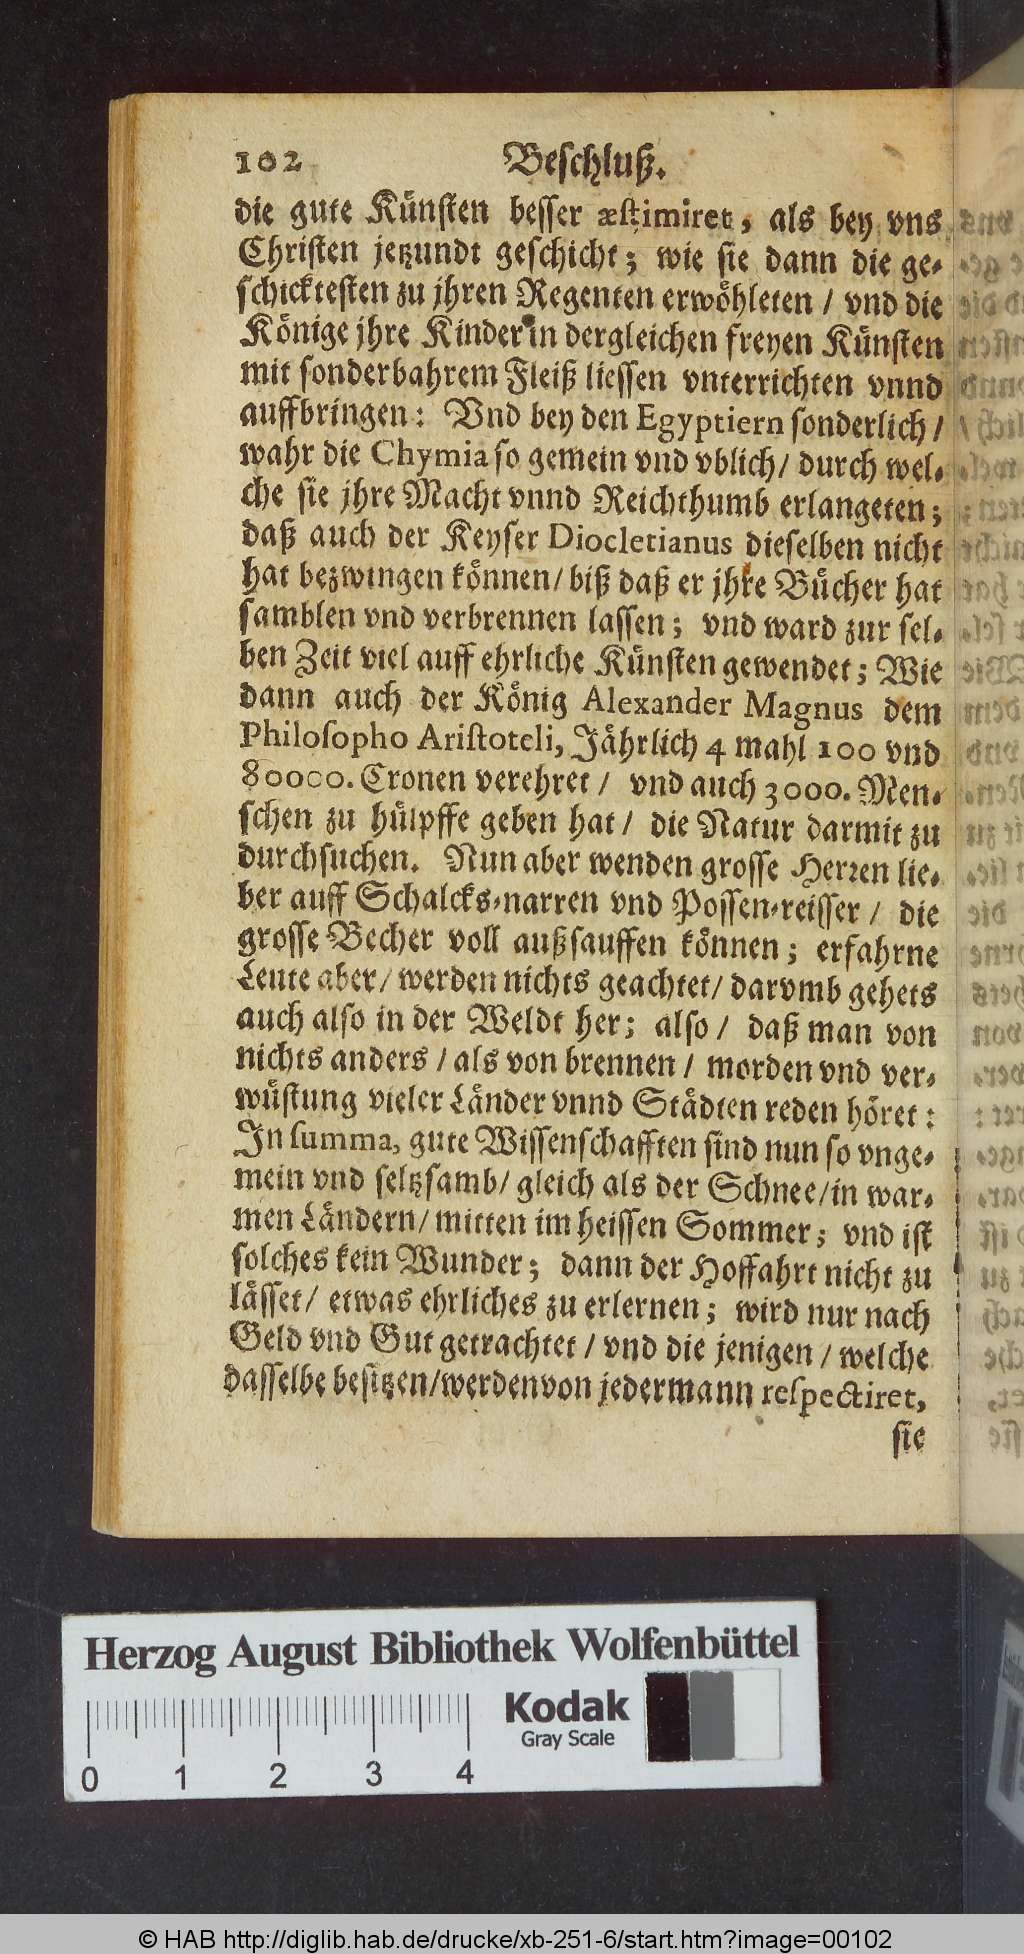 102 Beschluß.
die gute Künsten besser æstimiret, als bey vns
Christen jetzundt geschicht; wie sie dann die ge-
schicktesten zu jhren Regenten erwöhleten / vnd die
Könige jhre Kinder in dergleichen freyen Künsten
mit sonderbahrem Fleiß liessen vnterrichten vnnd
auffbringen: Vnd bey den Egyptiern sonderlich /
wahr die Chymia so gemein vnd vblich / durch wel-
che sie jhre Macht vnnd Reichthumb erlangeten;
daß auch der Keyser Diocletianus dieselben nicht
hat bezwingen können / biß daß er jhre Bücher hat
samblen vnd verbrennen lassen; vnd ward zur sel-
ben Zeit viel auff ehrliche Künsten gewendet; Wie
dann auch der König Alexander Magnus dem
Philosopho Aristoteli, Jährlich 4 mahl 100 vnd
80000. Cronen verehret / vnd auch 3000. Men-
schen zu hülpffe geben hat / die Natur darmit zu
durchsuchen. Nun aber wenden grosse Herren lie-
ber auff Schalcks-narren vnd Possen-reisser / die
grosse Becher voll außsauffen können; erfahrne
Leute aber / werden nichts geachtet / darvmb gehets
auch also in der Weldt her; also / daß man von
nichts anders / als von brennen / morden vnd ver-
wüstung vieler Länder vnnd Städten reden höret:
In summa, gute Wissenschafften sind nun so vnge-
mein vnd seltzsamb / gleich als der Schnee / in war-
men Ländern / mitten im heissen Sommer; vnd ist
solches kein Wunder; dann der Hoffahrt nicht zu
lässet / etwas ehrliches zu erlernen; wird nur nach
Geld vnd Gut getrachtet / vnd die jenigen / welche
dasselbe besitzen / werden von jedermann respectiret,
sie
Herzog August Bibliothek Wolfenbüttel
Kodak
Gray Scale
0 1 2 3 4
© HAB http://diglib.hab.de/drucke/xb-251-6/start.htm?image=00102